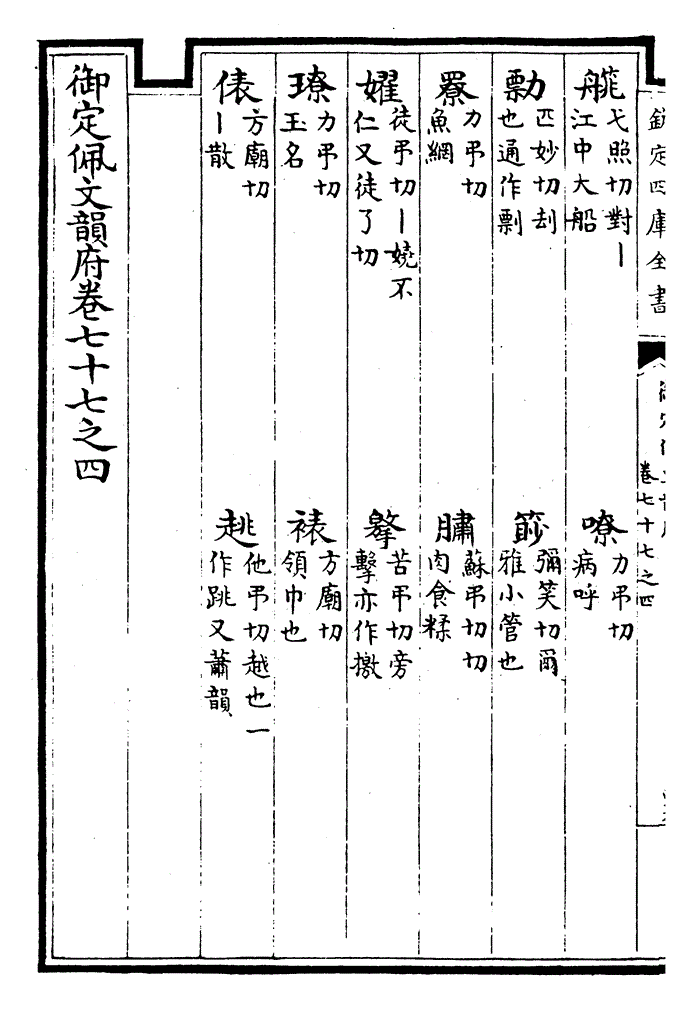 欽定四庫全書
卷七十七之四
艞 弋照切對丨江中大船
嘹 力弔切病呼
勡 匹妙切刦也通作剽
篎 彌笑切爾雅小管也
力弔切魚網
蘇弔切切肉食糅
嬥 徒弔切丨嬈不仁又徒了切
苦弔切旁擊亦作撽
璙 力弔切玉名
裱 方廟切領巾也
俵 方廟切丨散
趒 他弔切越也一作跳又蕭韻
御定佩文韻府卷七十七之四